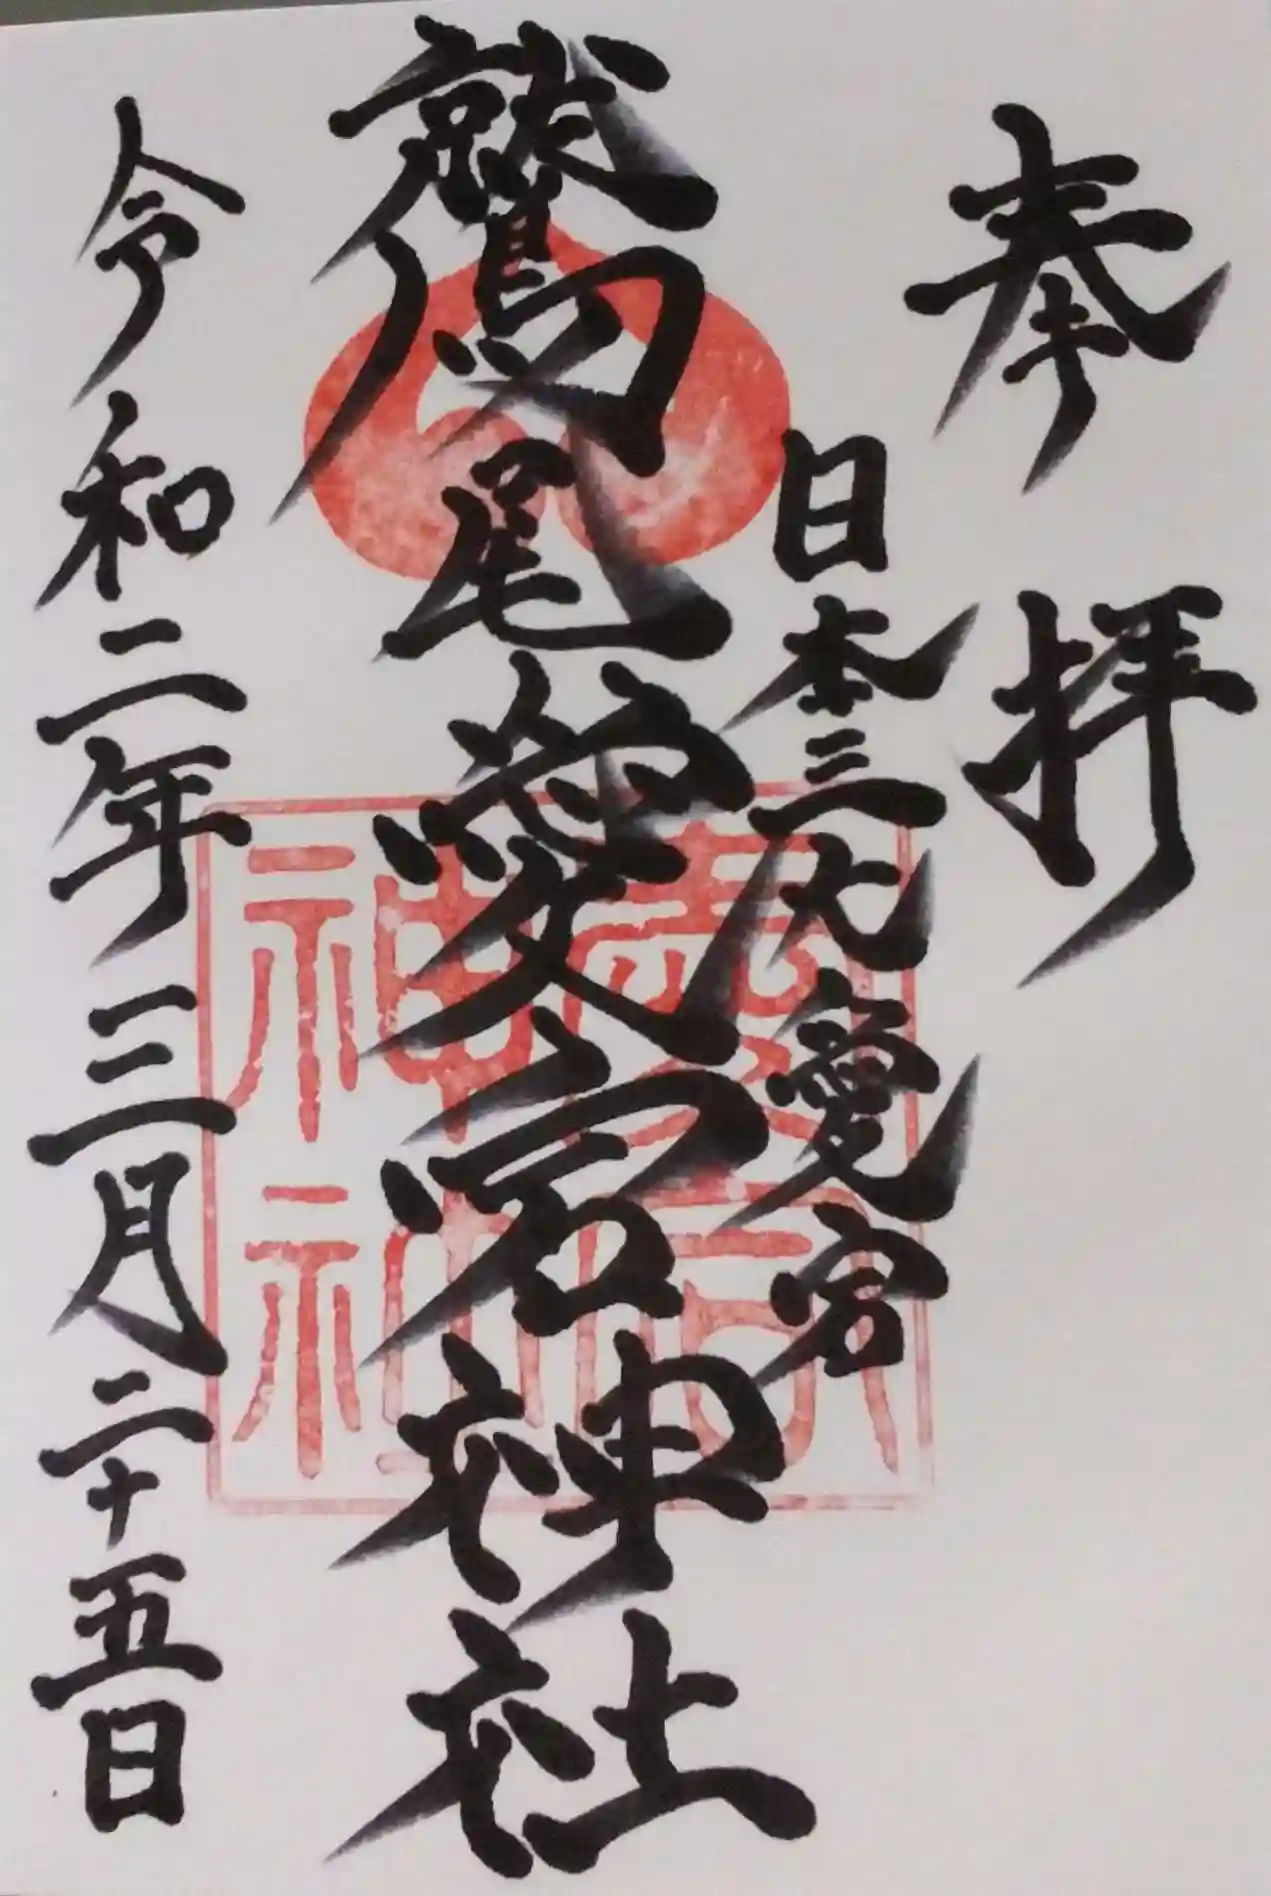 奉拝
日本三大愛宕
鷲尾愛宕神社
令和二年三月二十五日
愛宕
神社